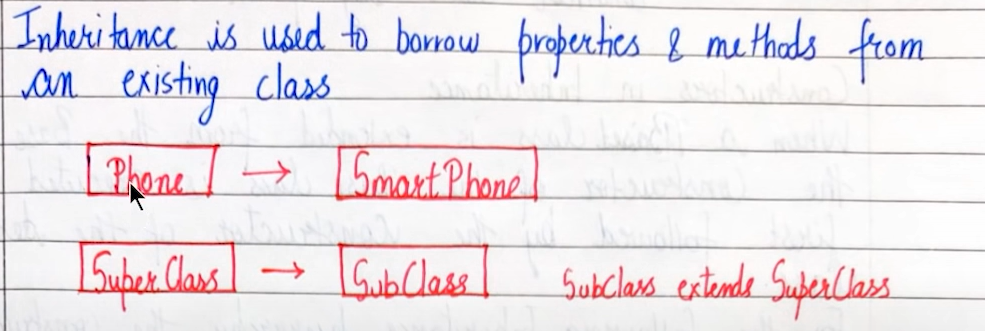 Inheritance is used to borrow properties & methods from
an existing class
Phone → SmartPhone
SuperClass → SubClass SubClass extends SuperClass